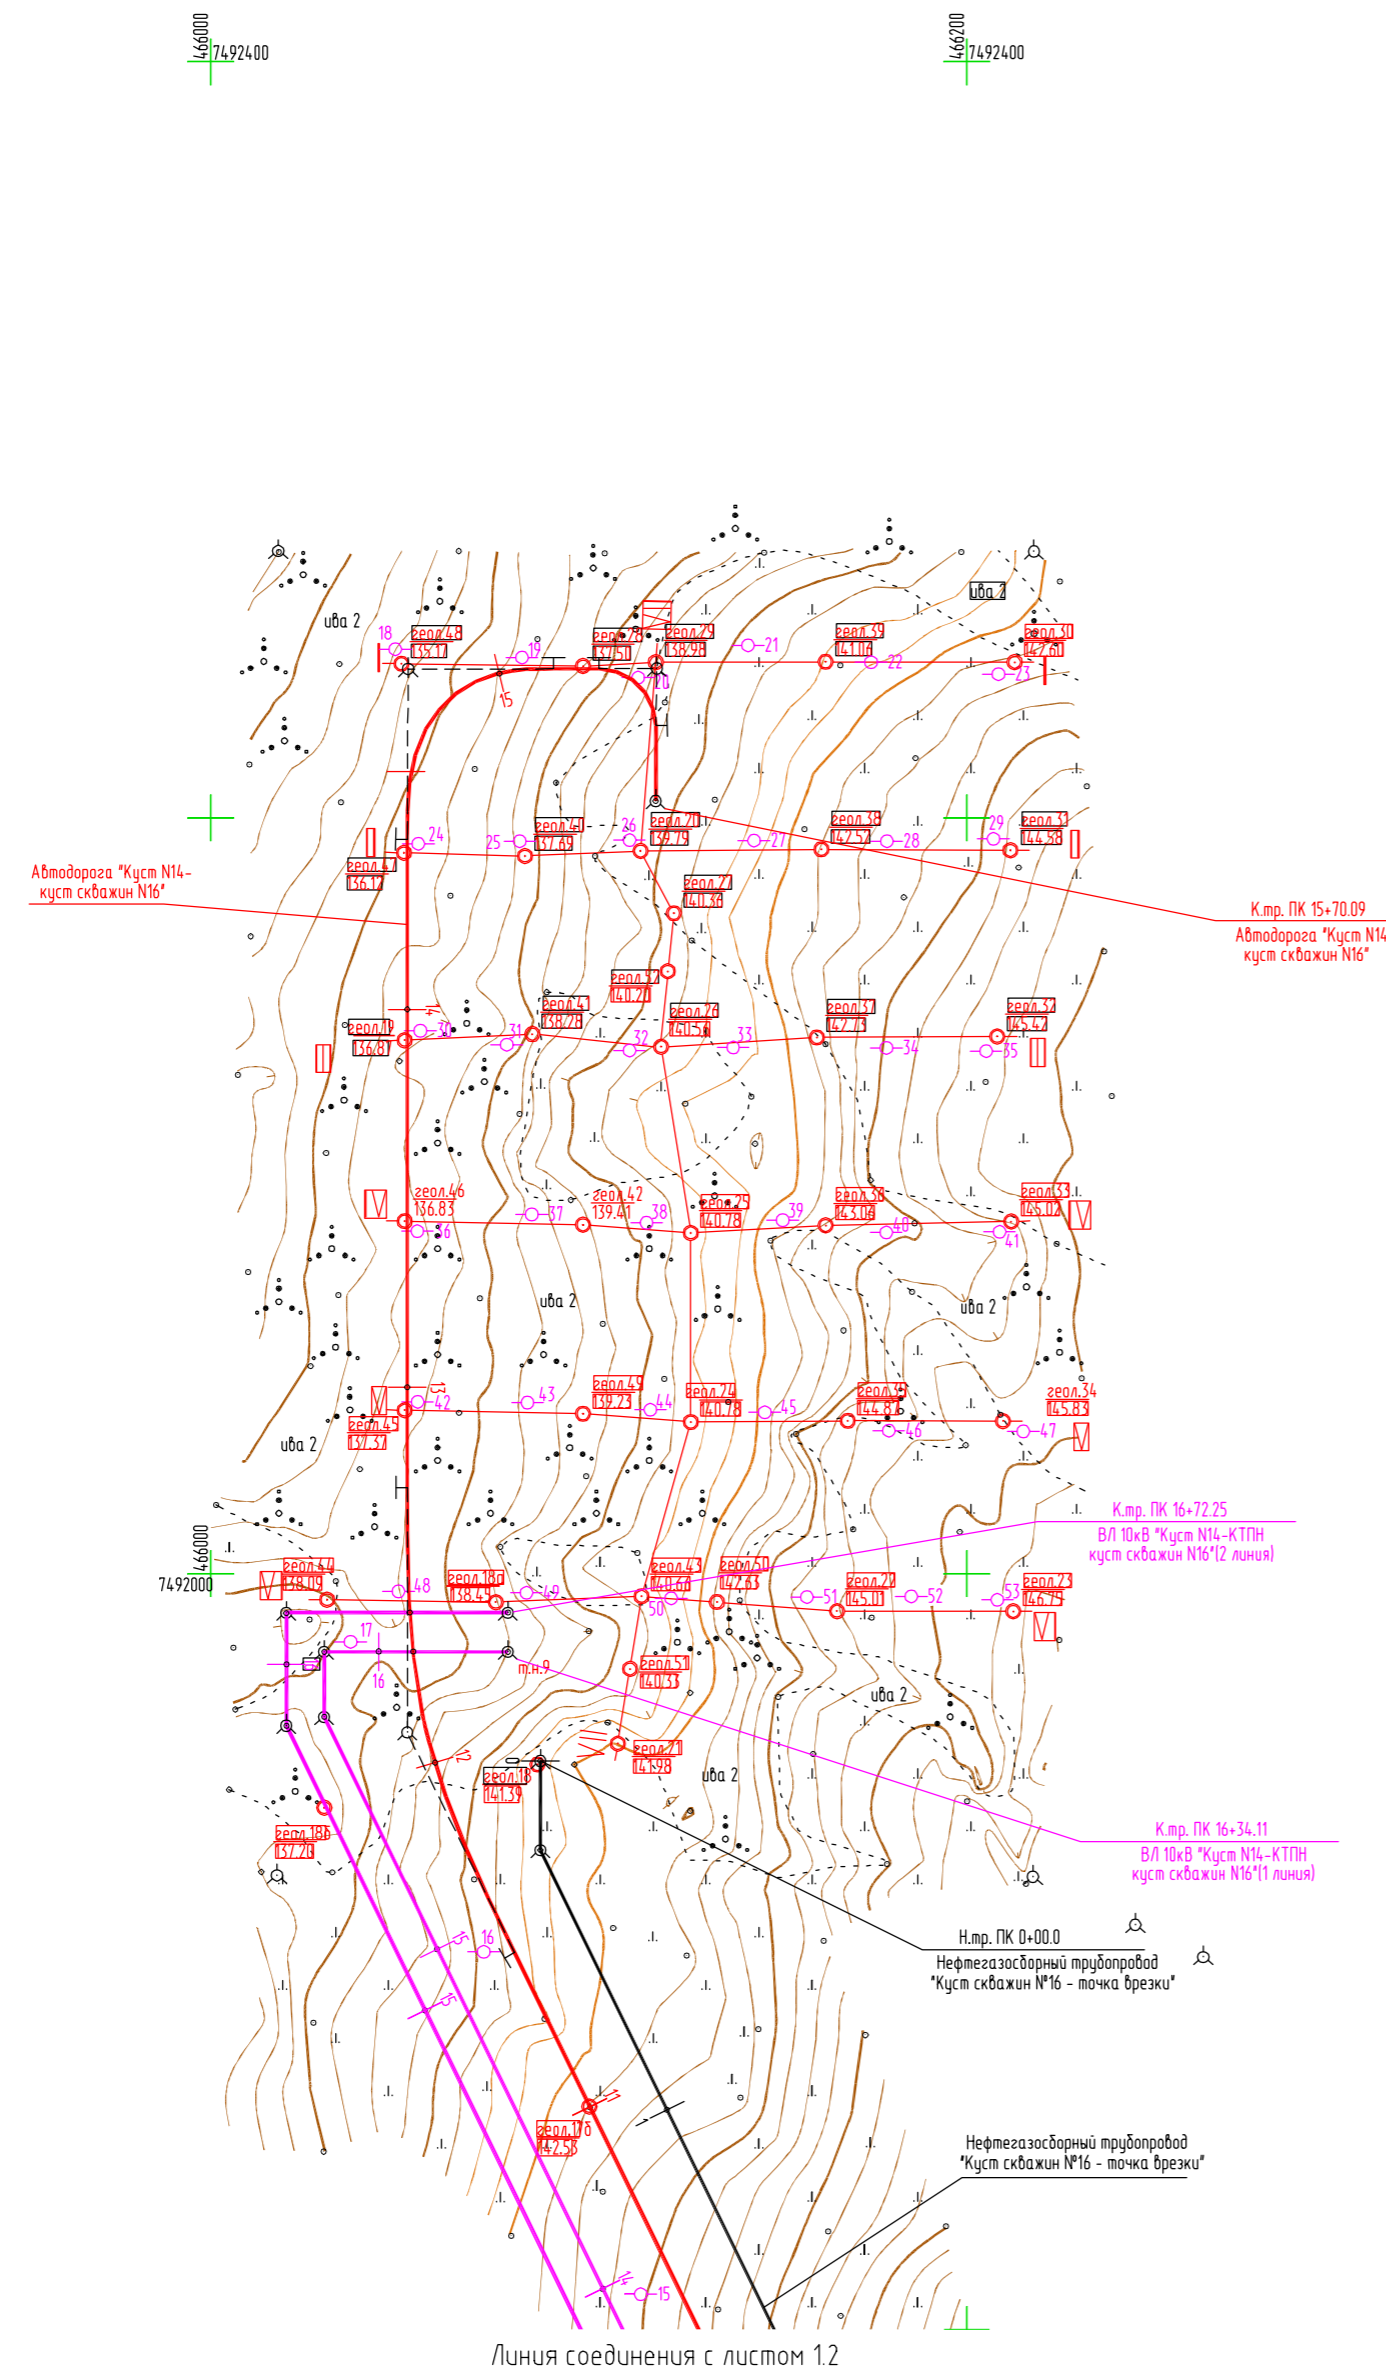 466000
7492400
466200
7492400
ива 2
ива 2
18
геол.48
135.17
19
геол.28
137.50
геол.29
138.98
21
геол.39
141.06
22
геол.30
142.60
23
20
15
24
25
геол.40
137.69
26
геол.20
139.79
27
геол.38
142.52
28
29
геол.31
144.58
геол.47
136.12
Автодорога "Куст N14-
куст скважин N16"
геол.27
140.36
К.тр. ПК 15+70.09
Автодорога "Куст N14
куст скважин N16"
геол.52
140.20
14
геол.19
136.87
30
31
геол.41
138.28
32
геол.26
140.56
33
геол.37
142.73
34
геол.32
145.42
35
геол.46
136.83
36
37
геол.42
139.41
38
геол.25
140.78
39
геол.36
143.06
40
геол.33
145.02
41
ива 2
ива 2
13
42
геол.45
137.37
43
геол.49
139.23
44
геол.24
140.78
45
геол.35
144.87
46
геол.34
145.83
47
ива 2
К.тр. ПК 16+72.25
ВЛ 10кВ "Куст N14-КТПН
куст скважин N16"(2 линия)
466000
7492000
геол.44
138.09
48
геол.18а
138.45
49
геол.43
140.66
50
геол.50
142.63
51
геол.22
145.01
52
53
геол.23
146.75
17
16
т.н.9
геол.51
140.33
ива 2
12
геол.21
141.98
ива 2
0
геол.18
141.39
геол.18б
137.20
К.тр. ПК 16+34.11
ВЛ 10кВ "Куст N14-КТПН
куст скважин N16"(1 линия)
Н.тр. ПК 0+00.0
Нефтегазосборный трубопровод
"Куст скважин №16 - точка врезки"
15
16
15
11
1
геол.17б
142.53
Нефтегазосборный трубопровод
"Куст скважин №16 - точка врезки"
14
15
Линия соединения с листом 1.2